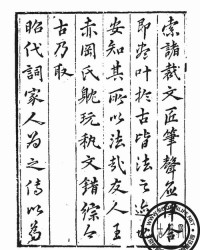 索諸裁文匠筆聲孟
即恐叶於古皆法之
安知其所以法哉友人王
赤岡氏耽玩執文錯綜今
古乃取
昭代詞家人為之傳以為